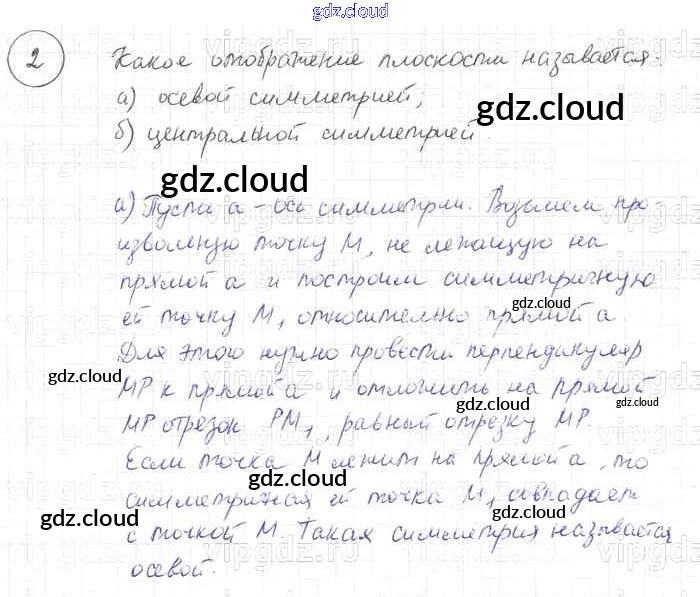 gdz.cloud
2 Какое отображение плоскости называется:
а) осевой симметрией;
gdz.cloud
б) центральной симметрией.
gdz.cloud
а) Пусть а - ось симметрии. Возьмем про-
извольную точку М, не лежащую на
прямой а и построим симметричную
gdz.cloud
ей точку М₁ относительно прямой а.
Для этого нужно провести перпендикуляр
gdz.cloud
МР к прямой а и отложить на прямой
gdz.cloud
gdz.cloud
МР отрезок РМ₁, равный отрезку МР.
Если точка М лежит на прямой а, то
gdz.cloud
симметричная ей точка М₁ совпадает
gdz.cloud
с точкой М. Такая симметрия называется
gdz.cloud
осевой.